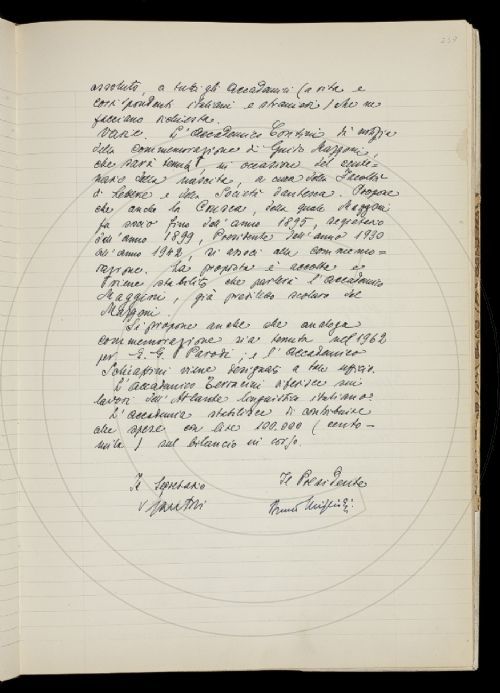 239
assoluto, a tutti gli Accademici (a vita e
corrispondenti italiani e stranieri) che ne
facciano richiesta.
Varie. L'Accademico Contini dà notizia
della commemorazione di Guido Mazzoni,
che sarà tenuta, in occasione del cente-
nario della nascita, a cura della Facoltà
di Lettere e della Società dantesca. Propone
che anche la Crusca, della quale Mazzoni
fu socio fino dall'anno 1895, segretario
dall'anno 1899, Presidente dall'anno 1930
all'anno 1942, si associ alla commemo-
razione. La proposta è accolta e
viene stabilito che parlerà l'Accademico
Maggini, già prediletto scolaro del
Mazzoni.
Si propone anche che analoga
commemorazione sia tenuta nel 1962
per E. G. Parodi; e l'Accademico
Schiaffini viene designato a tale ufficio.
L'Accademico Terracini riferisce sui
lavori dell'Atlante linguistico italiano.
L'Accademia stabilisce di contribuire
alle spese con lire 100.000 (cento-
mila) sul bilancio in corso.
Il Segretario Il Presidente
Bruno Migliorini